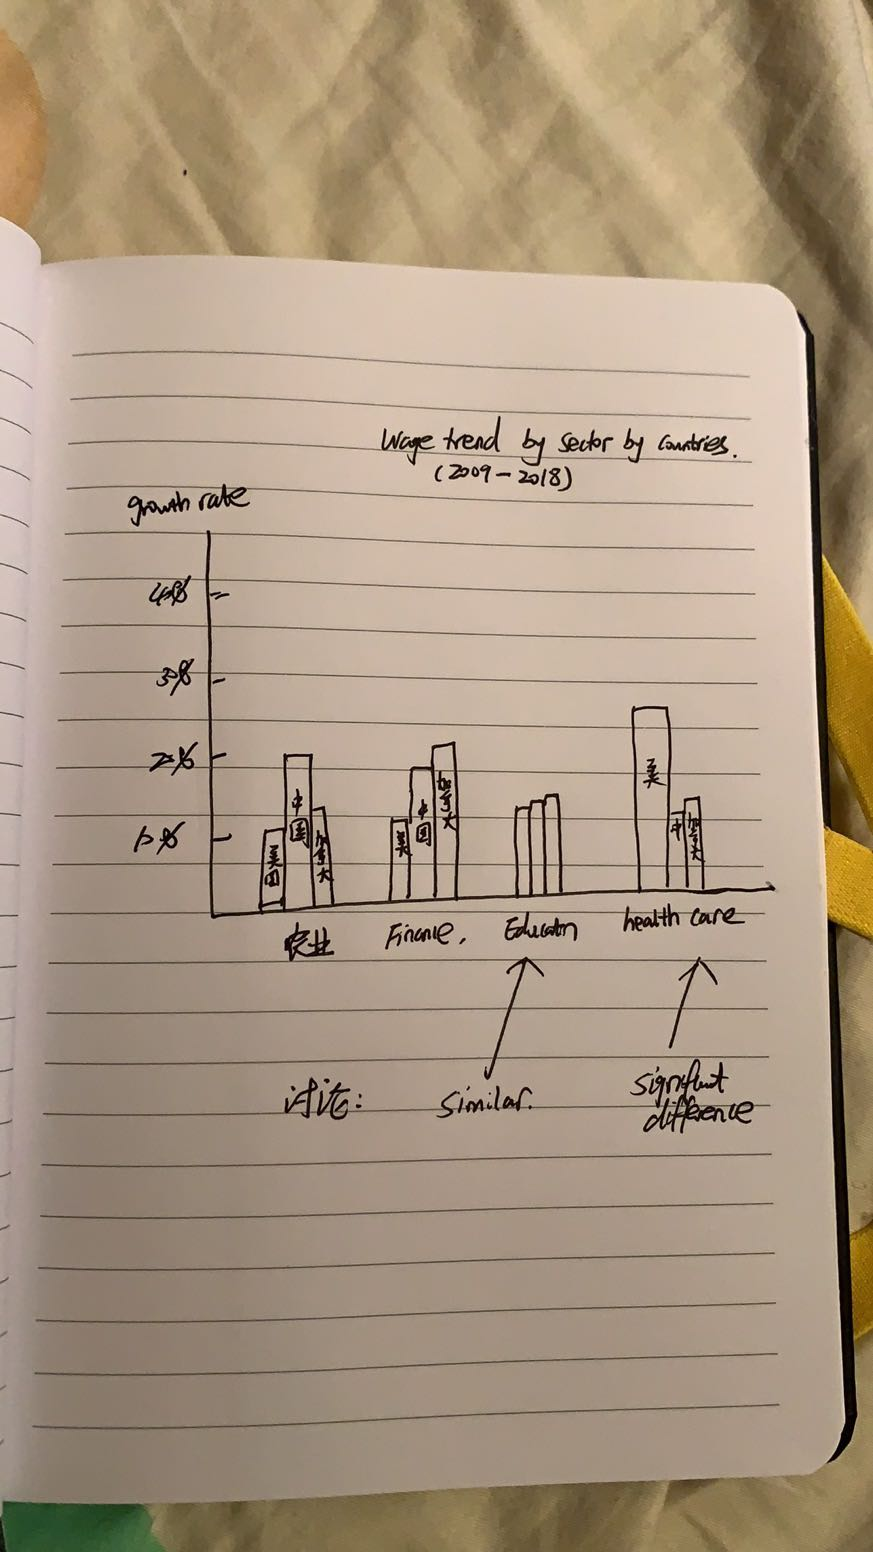 Wage trend by sector by countries.
(2009-2018)
growth rate
40%
30%
20%
10%
美国
中国
加拿大
美
中国
加拿大
美
中
加拿大
农业
Finance.
Educaton
health care
讨论:
similar.
significant
difference